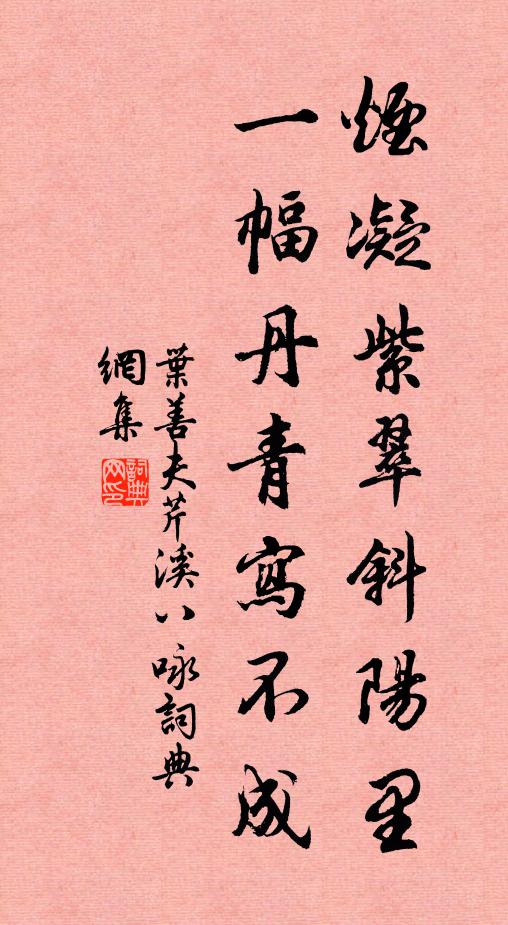 煙凝紫翠斜陽里
一幅丹青寫不成
葉善夫芹溪八咏詞典
網集
詞典網印